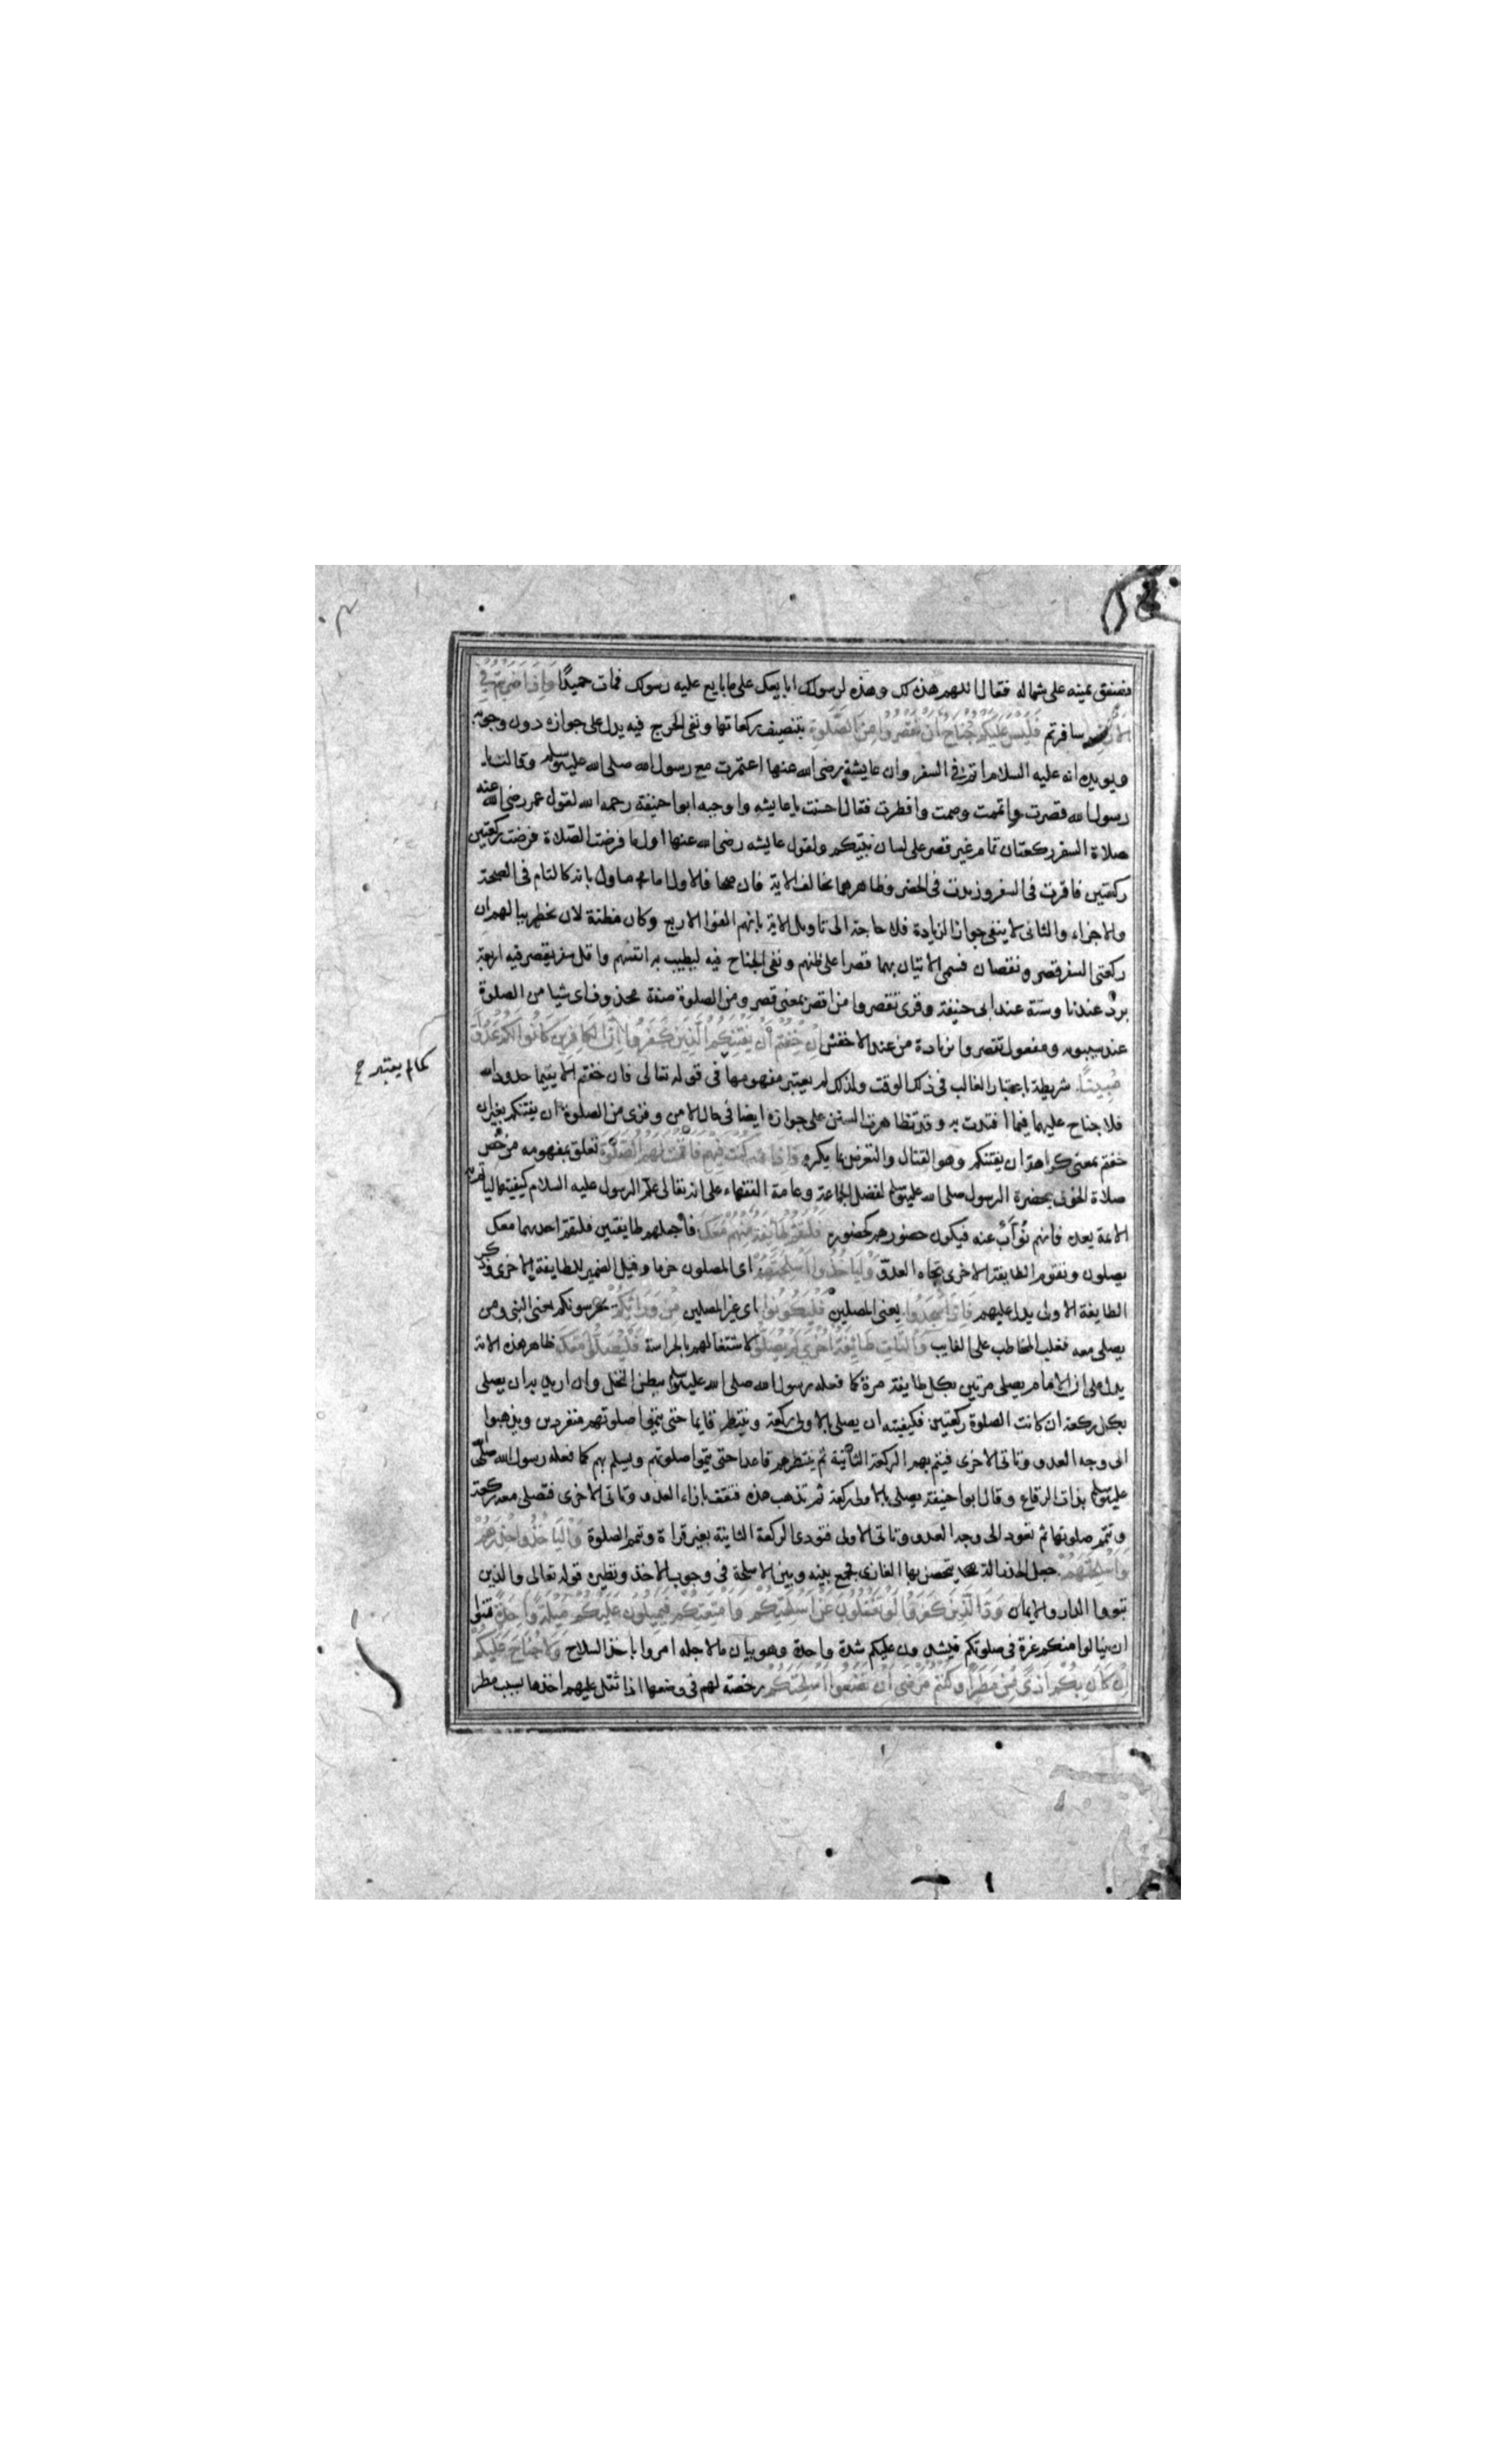 فصفق بيمينه على شماله فقال اللهم هذه لك وهذه لرسولك ابايعك على ما بايع عليه رسولك فمات حميدًا وَاِذَا ضَرَبْتُمْ فِي
الاَرْضِ سافرتم فَلَيْسَ عَلَيْكُمْ جُنَاحٌ اَنْ تَقْصُرُوا مِنَ الصَّلٰوةِ بتنصيف ركعاتها ونفى الحرج فيه يدل على جوازه دون وجوبه
ويويده انه عليه السلام اتم فى السفر وان عايشة رضى الله عنها اعتمرت مع رسول الله صلى الله عليه وسلم وقالت يا
رسول الله قصرت واتممت وصمت وافطرت فقال احسنت يا عايشه واوجبه ابوا حنيفة رحمه الله لقول عمر رضى الله عنه
صلاة السفر ركعتان تمام غير قصر على لسان نبيكم ولقول عايشه رضى الله عنها اول ما فرضت الصلاة فرضت ركعتين
ركعتين فاقرت فى السفر وزيدت فى الحضر وظاهرهما يخالف الاية فان صحا فالاول ماول بانه كالتام فى الصحة
والاجزاء والثانى لا ينفى جواز الزيادة فلا حاجة الى تاويل الاية بانهم الفوا الاربع وكان مظنة لان يخطر ببالهم ان
ركعتى السفر قصر ونقصان فسمى الاتيان بهما قصرا على ظنهم ونفى الجناح فيه ليطيب به انفسهم واقل سفر يقصر فيه اربعة
برد عندنا وستة عند ابى حنيفة وقرئ تقصروا من اقصر بمعنى قصر ومن الصلوة صفة محذوف اى شيا من الصلوة
عند سيبويه ومفعول تقصروا بزيادة من عند الاخفش اِنْ خِفْتُمْ اَنْ يَفْتِنَكُمُ الَّذِينَ كَفَرُوا اِنَّ الْكَافِرِينَ كَانُوا لَكُمْ عَدُوًّا
مُبِينًا شريطة باعتبار الغالب فى ذلك الوقت ولذلك لم يعتبر مفهومها فى قوله تعالى فان خفتم الا يقيما حدود الله
كما لم يعتبر ح
فلا جناح عليهما فيما افتدت به وقد تظاهرت السنن على جوازه ايضا فى حال الامن وقرئ من الصلوة ان يفتنكم بغير ان
خفتم بمعنى كراهة ان يفتنكم وهو القتال والتعرض بما يكره وَاِذَا كُنْتَ فِيهِمْ فَاَقَمْتَ لَهُمُ الصَّلٰوةَ تعلق بمفهومه من خص
صلاة الخوف بحضرة الرسول صلى الله عليه وسلم لفضل الجماعة وعامة الفقهاء على انه تعالى علم الرسول عليه السلام كيفيتها لياتم به
الائمة بعده فانهم نُوّاب عنه فيكون حضورهم كحضوره فَلْتَقُمْ طَائِفَةٌ مِنْهُمْ مَعَكَ فاجعلهم طايفتين فلتقم احديهما معك
يصلون وتقوم الطايفة الاخرى تجاه العدو وَلْيَاْخُذُوا اَسْلِحَتَهُمْ اى المصلون حزما وقيل الضمير للطايفة الاخرى وذكر
الطايفة الاولى يدل عليهم فَاِذَا سَجَدُوا يعنى المصلين فَلْيَكُونُوا اى غير المصلين مِنْ وَرَائِكُمْ يحرسونكم يعنى النبى ومن
يصلى معه فغلب المخاطب على الغايب وَلْتَاْتِ طَائِفَةٌ اُخْرٰى لَمْ يُصَلُّوا لاشتغالهم بالحراسة فَلْيُصَلُّوا مَعَكَ ظاهر هذه الاية
يدل على ان الامام يصلى مرتين بكل طايفة مرة كما فعله رسول الله صلى الله عليه وسلم ببطن النخل وان اريد به ان يصلى
بكل ركعة ان كانت الصلوة ركعتين فكيفيته ان يصلى بالاولى ركعة وينتظر قايما حتى يتموا صلوتهم منفردين ويذهبوا
الى وجه العدو وتاتى الاخرى فيتم بهم الركعة الثانية ثم ينتظرهم قاعدا حتى يتموا صلوتهم ويسلم بهم كما فعله رسول الله صلى الله
عليه وسلم بذات الرقاع وقال ابوا حنيفة يصلى بالاولى ركعة ثم تذهب هذه فتقف بازاء العدو وتاتى الاخرى فتصلى معه ركعة
وتتم صلوتها ثم تعود الى وجه العدو وتاتى الاولى فتودى الركعة الثانية بغير قراة وتتم الصلوة وَلْيَاْخُذُوا حِذْرَهُمْ
وَاَسْلِحَتَهُمْ جعل الحذر الة يتحصن بها الغازى فجمع بينه وبين الاسلحة فى وجوب الاخذ ونظيره قوله تعالى والذين
تبووا الدار والايمان وَدَّ الَّذِينَ كَفَرُوا لَوْ تَغْفُلُونَ عَنْ اَسْلِحَتِكُمْ وَاَمْتِعَتِكُمْ فَيَمِيلُونَ عَلَيْكُمْ مَيْلَةً وَاحِدَةً تمنوا
ان ينالوا منكم غرة فى صلوتكم فيشدون عليكم شدة واحدة وهو بيان ما لاجله امروا باخذ السلاح وَلَا جُنَاحَ عَلَيْكُمْ
اِنْ كَانَ بِكُمْ اَذًى مِنْ مَطَرٍ اَوْ كُنْتُمْ مَرْضٰى اَنْ تَضَعُوا اَسْلِحَتَكُمْ رخصة لهم فى وضعها اذا ثقل عليهم اخذها بسبب مطر